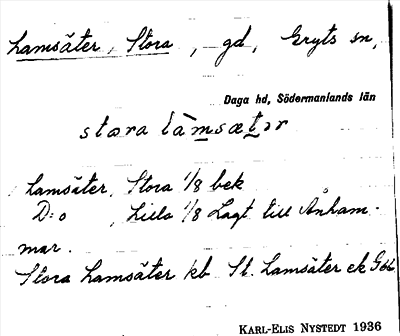 Lamsäter, Stora, gd, Gryts sn,
Daga hd, Södermanlands län
stora làmsætər
Lamsäter, Stora 1/8 bek
D:o, Lilla 1/8 Lagt till Ånham-
mar.
Stora Lamsäter kb St. Lamsäter ek
KARL-ELIS NYSTEDT 1936